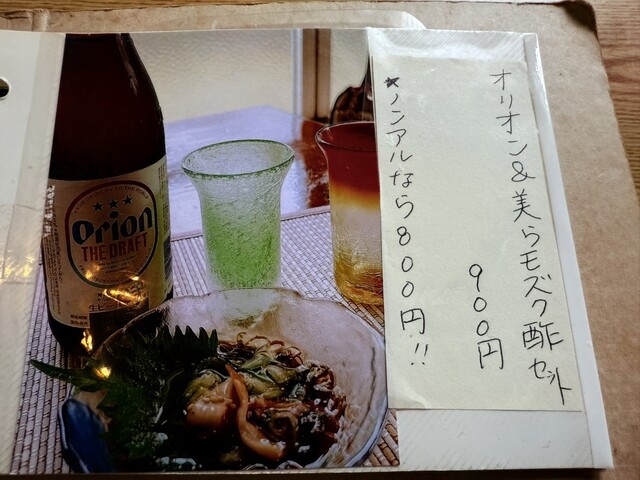 オリオン&美らモズク酢セット
900円
★ノンアルなら800円!!
Orion
THE DRAFT